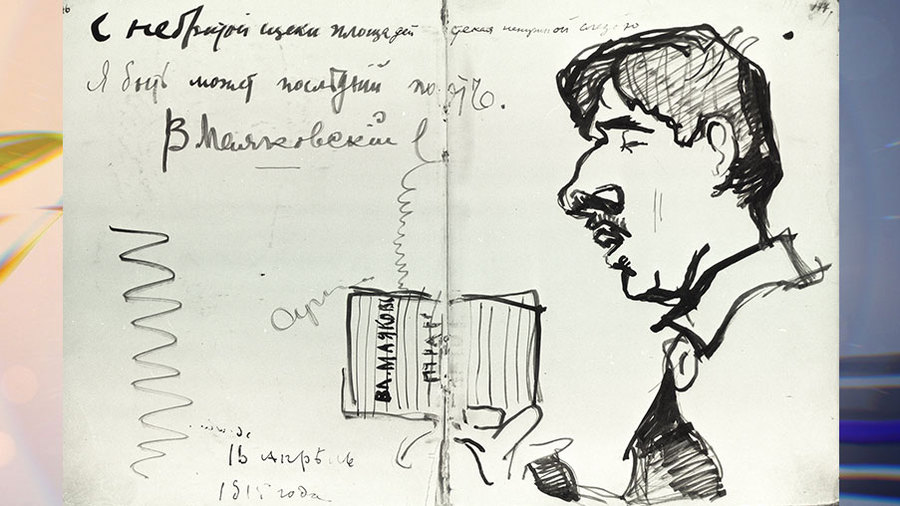 С небритой щеки площадей стекая ненужной слезою
Я быть может послѣдній поэтъ.
В Маяковскій
ВЛ. МАЯКОВС
апрѣль
1915 года